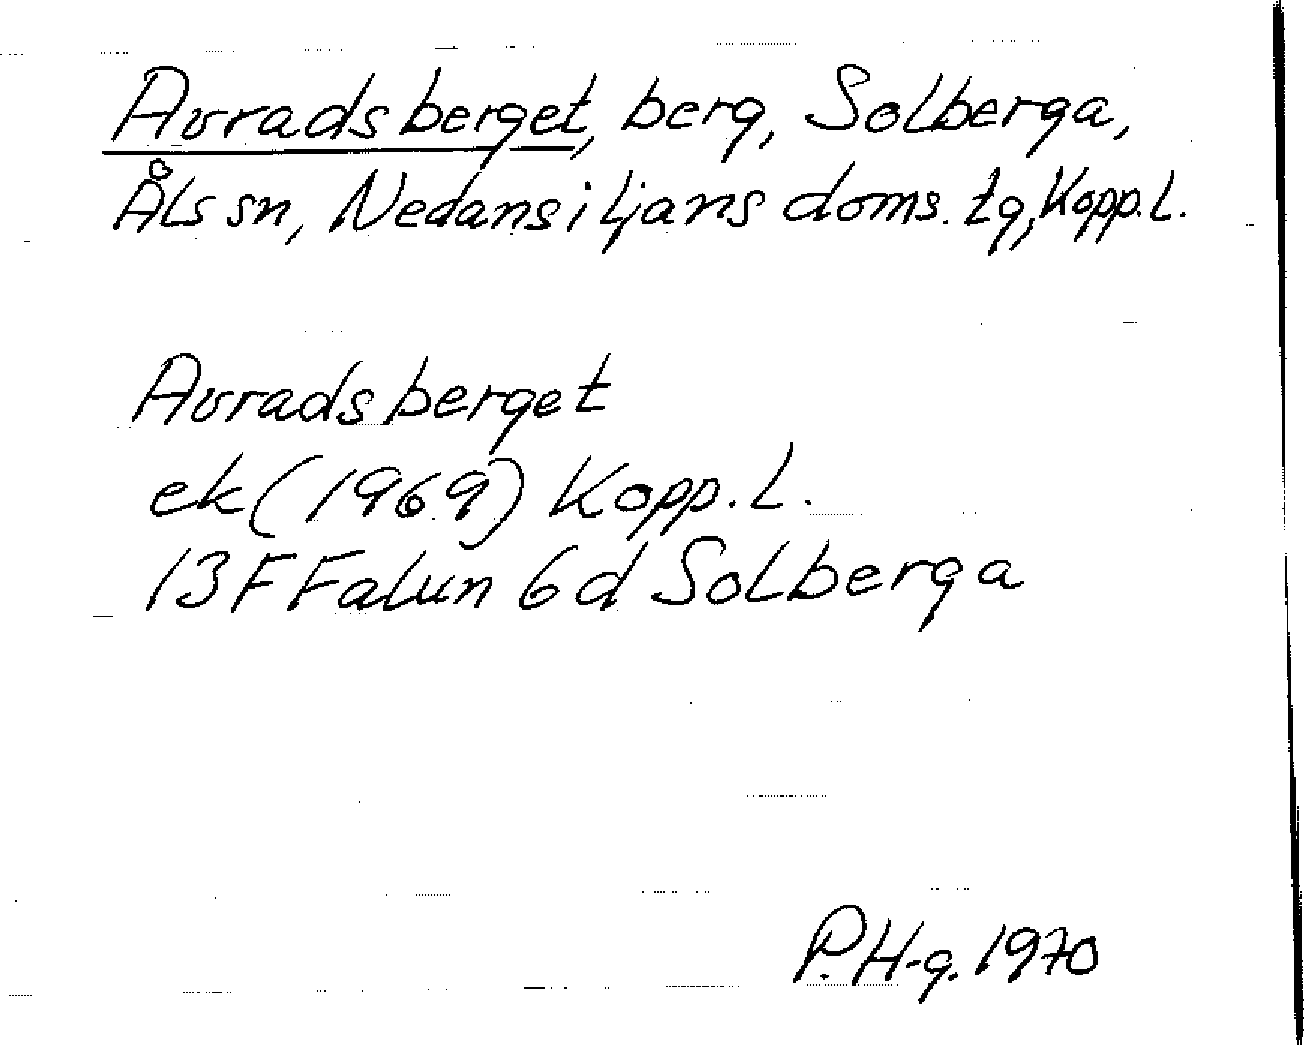 Avradsberget, berg, Solberga,
Åls sn, Nedansiljans doms. tg, Kopp. L.
Avradsberget
ek (1969) Kopp. L.
13F Falun 6d Solberga
P. H-g. 1970